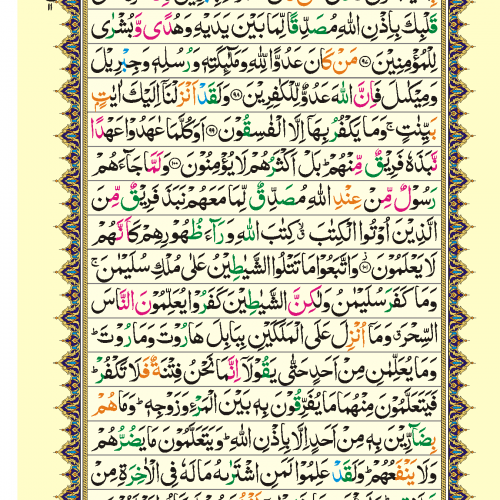 قَلْبِكَ بِاِذْنِ اللّٰهِ مُصَدِّقًا لِّمَا بَيْنَ يَدَيْهِ وَهُدًى وَّبُشْرٰى
لِلْمُؤْمِنِيْنَ ﴿۹۷﴾ مَنْ كَانَ عَدُوًّا لِّلّٰهِ وَمَلٰٓئِكَتِهٖ وَرُسُلِهٖ وَجِبْرِيْلَ
وَمِيْكٰىلَ فَاِنَّ اللّٰهَ عَدُوٌّ لِّلْكٰفِرِيْنَ ﴿۹۸﴾ وَلَقَدْ اَنْزَلْنَاۤ اِلَيْكَ اٰيٰتٍۭ
بَيِّنٰتٍ ۚ وَمَا يَكْفُرُ بِهَاۤ اِلَّا الْفٰسِقُوْنَ ﴿۹۹﴾ اَوَكُلَّمَا عٰهَدُوْا عَهْدًا
نَّبَذَهٗ فَرِيْقٌ مِّنْهُمْ ؕ بَلْ اَكْثَرُهُمْ لَا يُؤْمِنُوْنَ ﴿۱۰۰﴾ وَلَمَّا جَآءَهُمْ
رَسُوْلٌ مِّنْ عِنْدِ اللّٰهِ مُصَدِّقٌ لِّمَا مَعَهُمْ نَبَذَ فَرِيْقٌ مِّنَ
الَّذِيْنَ اُوْتُوا الْكِتٰبَ ۙ كِتٰبَ اللّٰهِ وَرَآءَ ظُهُوْرِهِمْ كَاَنَّهُمْ
لَا يَعْلَمُوْنَ ﴿۱۰۱﴾ وَاتَّبَعُوْا مَا تَتْلُوا الشَّيٰطِيْنُ عَلٰى مُلْكِ سُلَيْمٰنَ ۚ
وَمَا كَفَرَ سُلَيْمٰنُ وَلٰكِنَّ الشَّيٰطِيْنَ كَفَرُوْا يُعَلِّمُوْنَ النَّاسَ
السِّحْرَ ۗ وَمَاۤ اُنْزِلَ عَلَى الْمَلَكَيْنِ بِبَابِلَ هَارُوْتَ وَمَارُوْتَ ؕ
وَمَا يُعَلِّمٰنِ مِنْ اَحَدٍ حَتّٰى يَقُوْلَاۤ اِنَّمَا نَحْنُ فِتْنَةٌ فَلَا تَكْفُرْ ؕ
فَيَتَعَلَّمُوْنَ مِنْهُمَا مَا يُفَرِّقُوْنَ بِهٖ بَيْنَ الْمَرْءِ وَزَوْجِهٖ ؕ وَمَا هُمْ
بِضَآرِّيْنَ بِهٖ مِنْ اَحَدٍ اِلَّا بِاِذْنِ اللّٰهِ ؕ وَيَتَعَلَّمُوْنَ مَا يَضُرُّهُمْ
وَلَا يَنْفَعُهُمْ ؕ وَلَقَدْ عَلِمُوْا لَمَنِ اشْتَرٰىهُ مَا لَهٗ فِى الْاٰخِرَةِ مِنْ